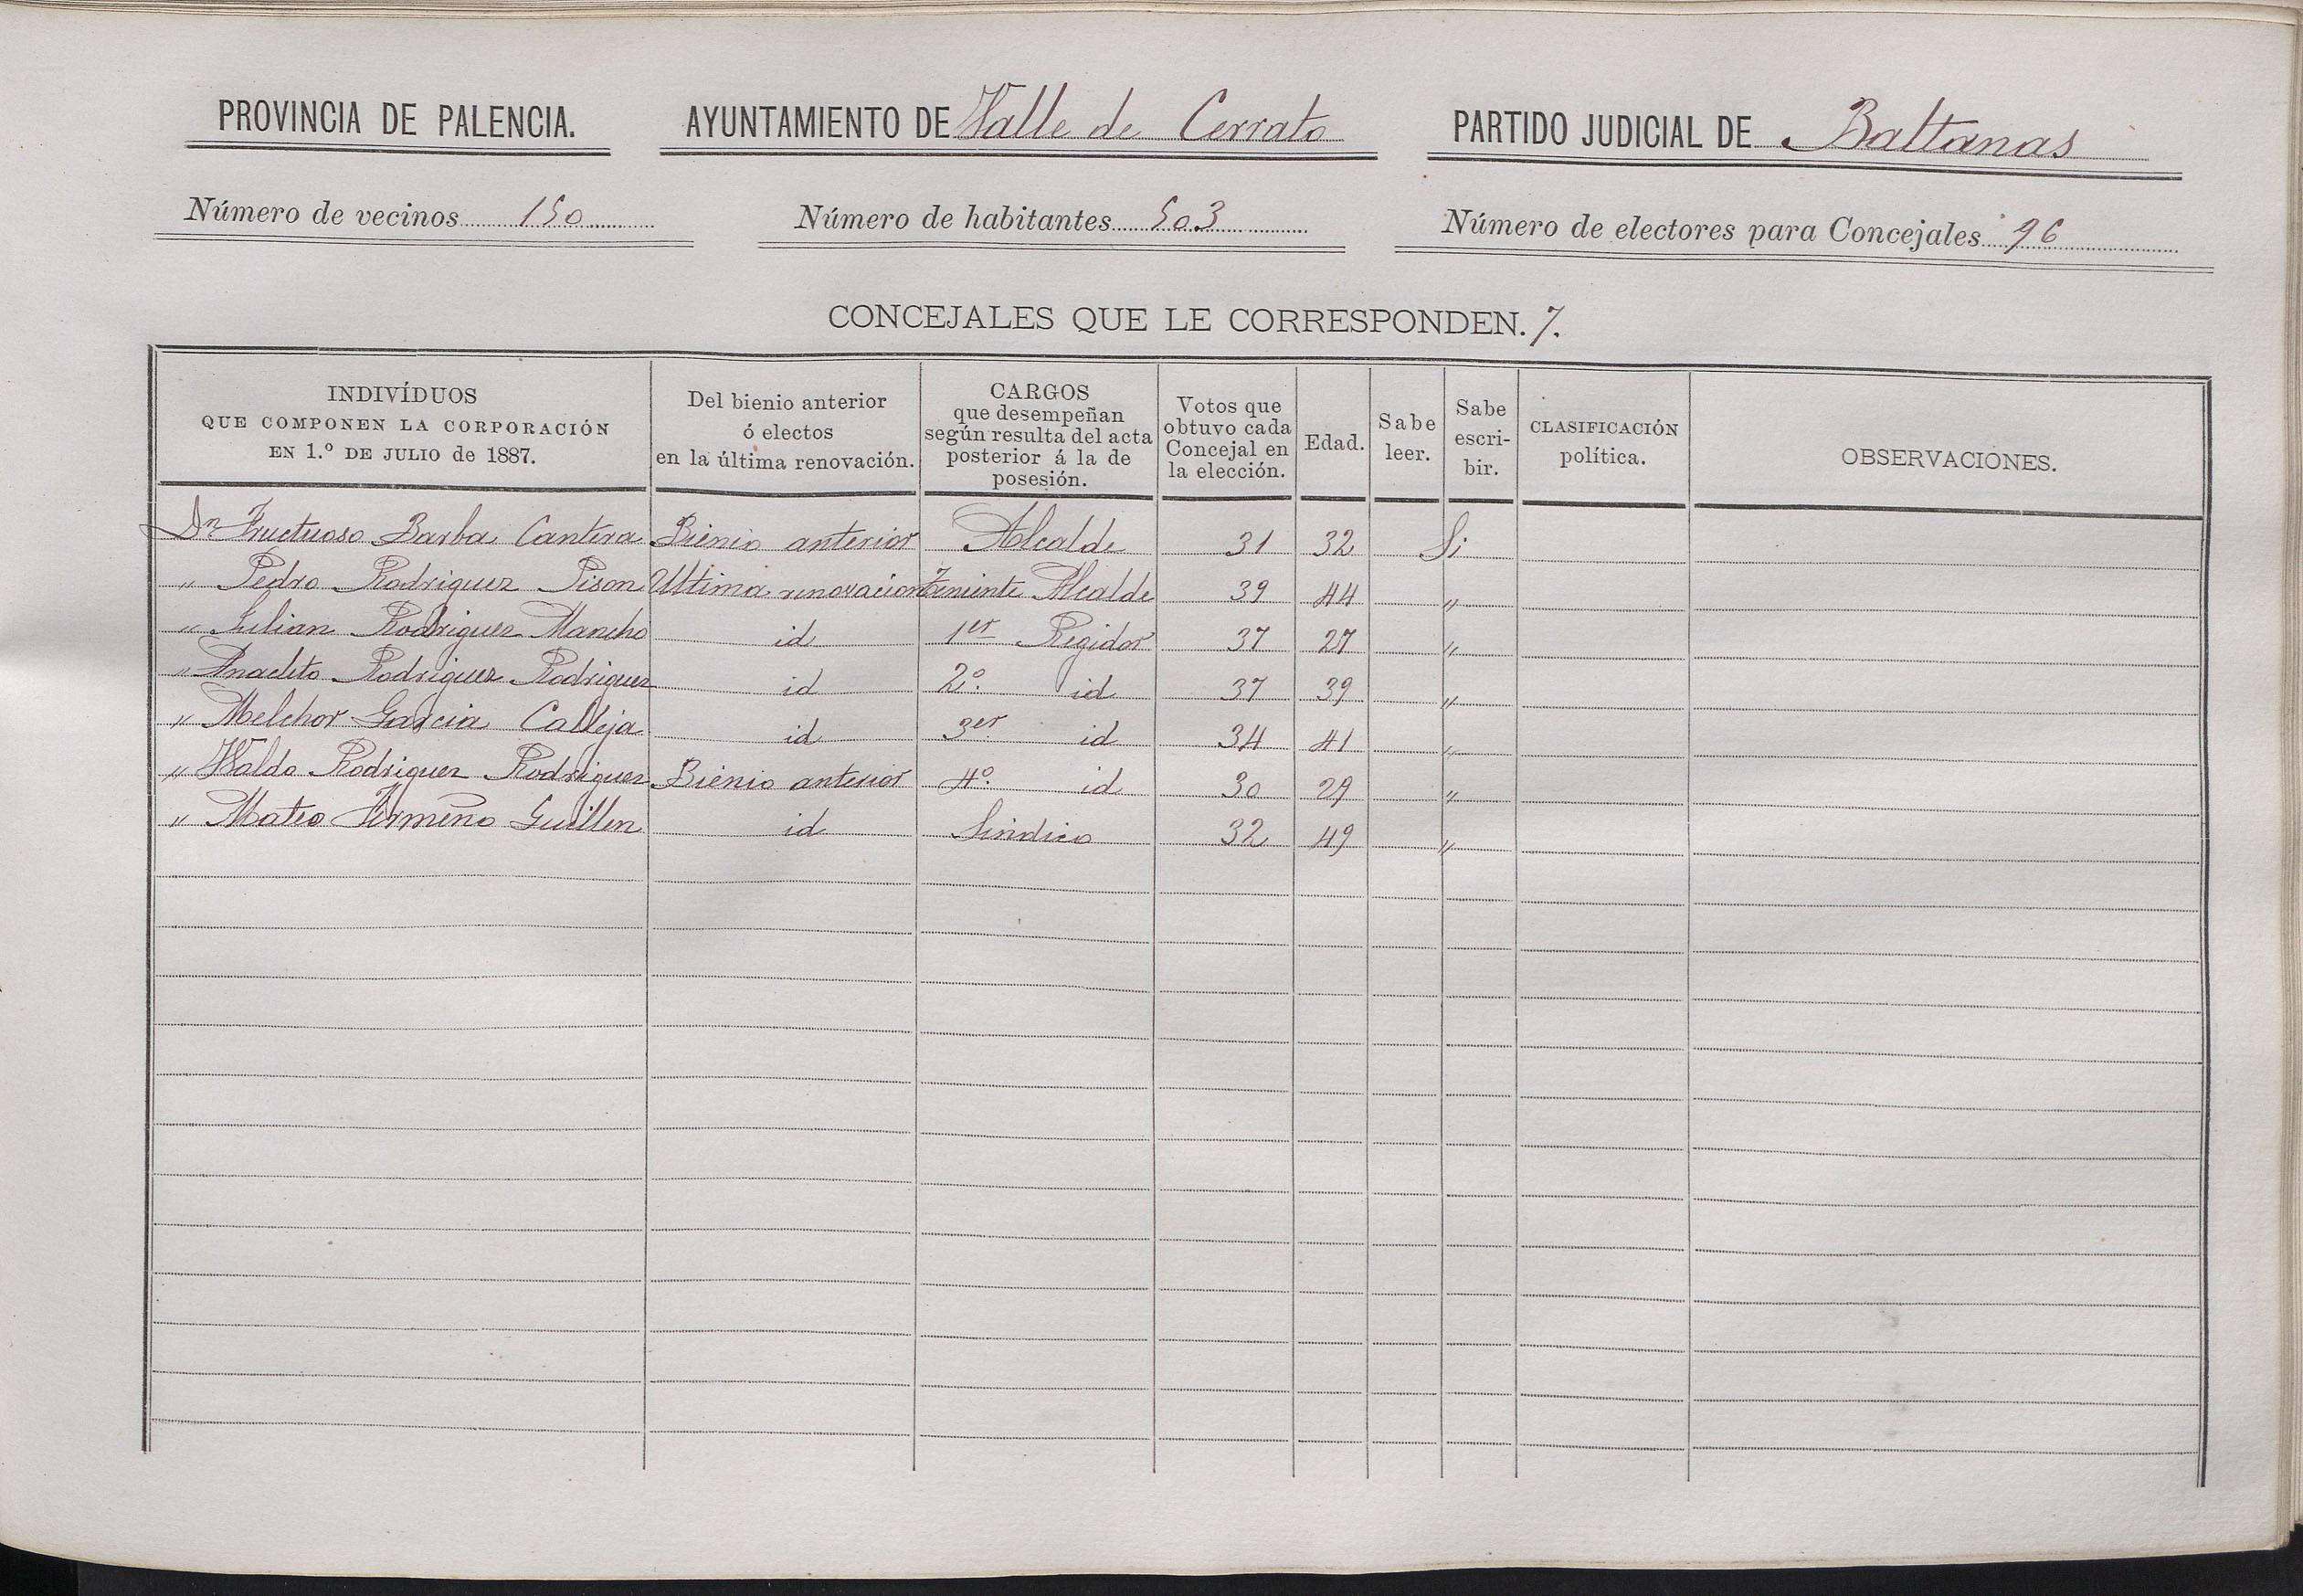 PROVINCIA DE PALENCIA. AYUNTAMIENTO DE Valle de Cerrato PARTIDO JUDICIAL DE Baltanas
Número de vecinos 150 Número de habitantes 503 Número de electores para Concejales 96
CONCEJALES QUE LE CORRESPONDEN. 7.
INDIVÍDUOS QUE COMPONEN LA CORPORACIÓN EN 1.º DE JULIO de 1887. Del bienio anterior ó electos en la última renovación. CARGOS que desempeñan según resulta del acta posterior á la de posesión. Votos que obtuvo cada Concejal en la elección. Edad. Sabe leer. Sabe escri-bir. CLASIFICACIÓN política. OBSERVACIONES.
Dn Fructuoso Barba Cantera Bienio anterior Alcalde 31 32 Si
" Pedro Rodriguez Pison Ultima renovacion Teniente Alcalde 39 44 "
" Julian Rodriguez Mancho id 1er Regidor 37 27 "
" Anacleto Rodriguez Rodriguez id 2º. id 37 39 "
" Melchor Garcia Calleja id 3er. id 34 41 "
" Waldo Rodriguez Rodriguez Bienio anterior 4º. id 30 29 "
" Mateo Guillen id Sindico 32 49 "